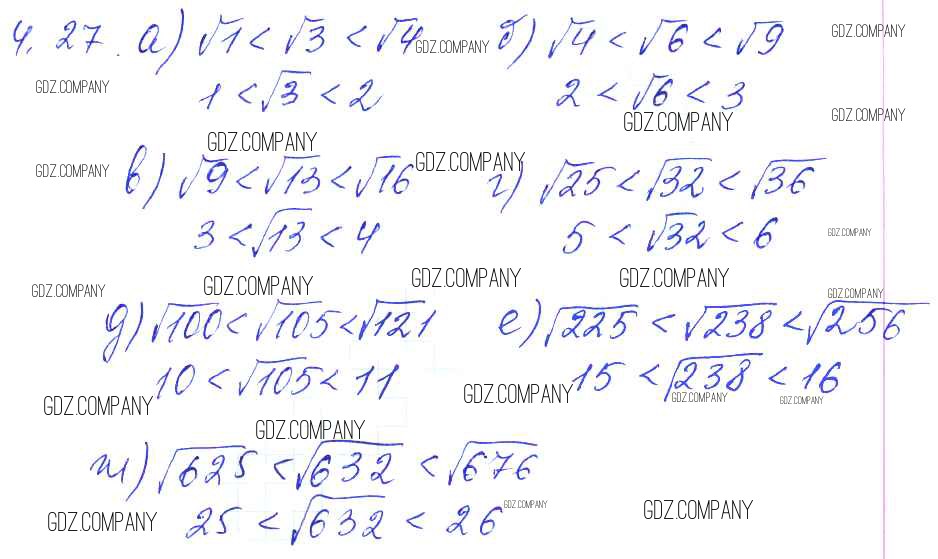 4.27. а) √1 < √3 < √4 GDZ.COMPANY б) √4 < √6 < √9 GDZ.COMPANY
GDZ.COMPANY 1 < √3 < 2 2 < √6 < 3
GDZ.COMPANY GDZ.COMPANY GDZ.COMPANY
GDZ.COMPANY в) √9 < √13 < √16 GDZ.COMPANY г) √25 < √32 < √36
3 < √13 < 4 5 < √32 < 6 GDZ.COMPANY
GDZ.COMPANY GDZ.COMPANY GDZ.COMPANY GDZ.COMPANY GDZ.COMPANY
д) √100 < √105 < √121 е) √225 < √238 < √256
10 < √105 < 11 15 < √238 < 16
GDZ.COMPANY GDZ.COMPANY GDZ.COMPANY GDZ.COMPANY
GDZ.COMPANY
ж) √625 < √632 < √676
GDZ.COMPANY 25 < √632 < 26 GDZ.COMPANY GDZ.COMPANY